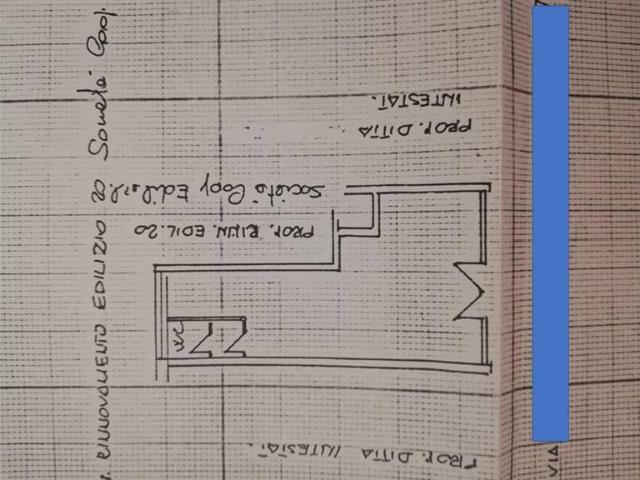 PROP. DITTA INTESTAT.
WC
PROP. RINN. EDIL. 20
Società Coop Edil
PROP. DITTA
INTESTAT.
RINNOVAMENTO EDILIZIO 20 Società Coop.
VIA